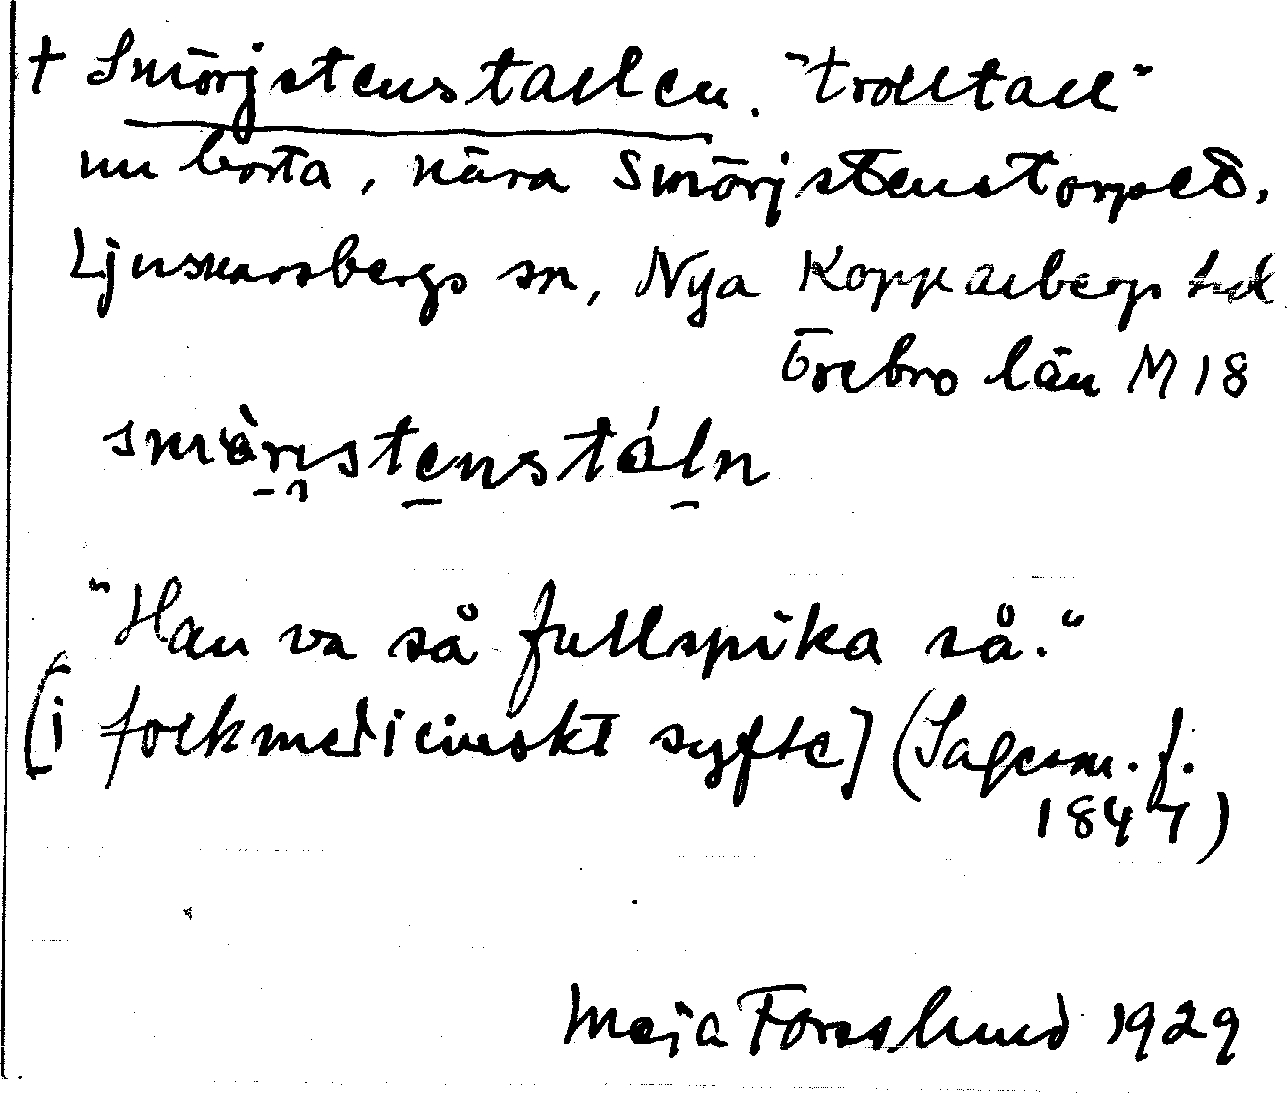 † Smörjstenstallen. "trolltall"
nu borta, nära Smörjstenstorpet,
Ljusnarsbergs sn, Nya Kopparbergs hd
Örebro län M 18
"Han va så fullspika så."
[i folkmedicinskt syfte] (Sagesm. f.
1847)
Maja Forsslund 1929